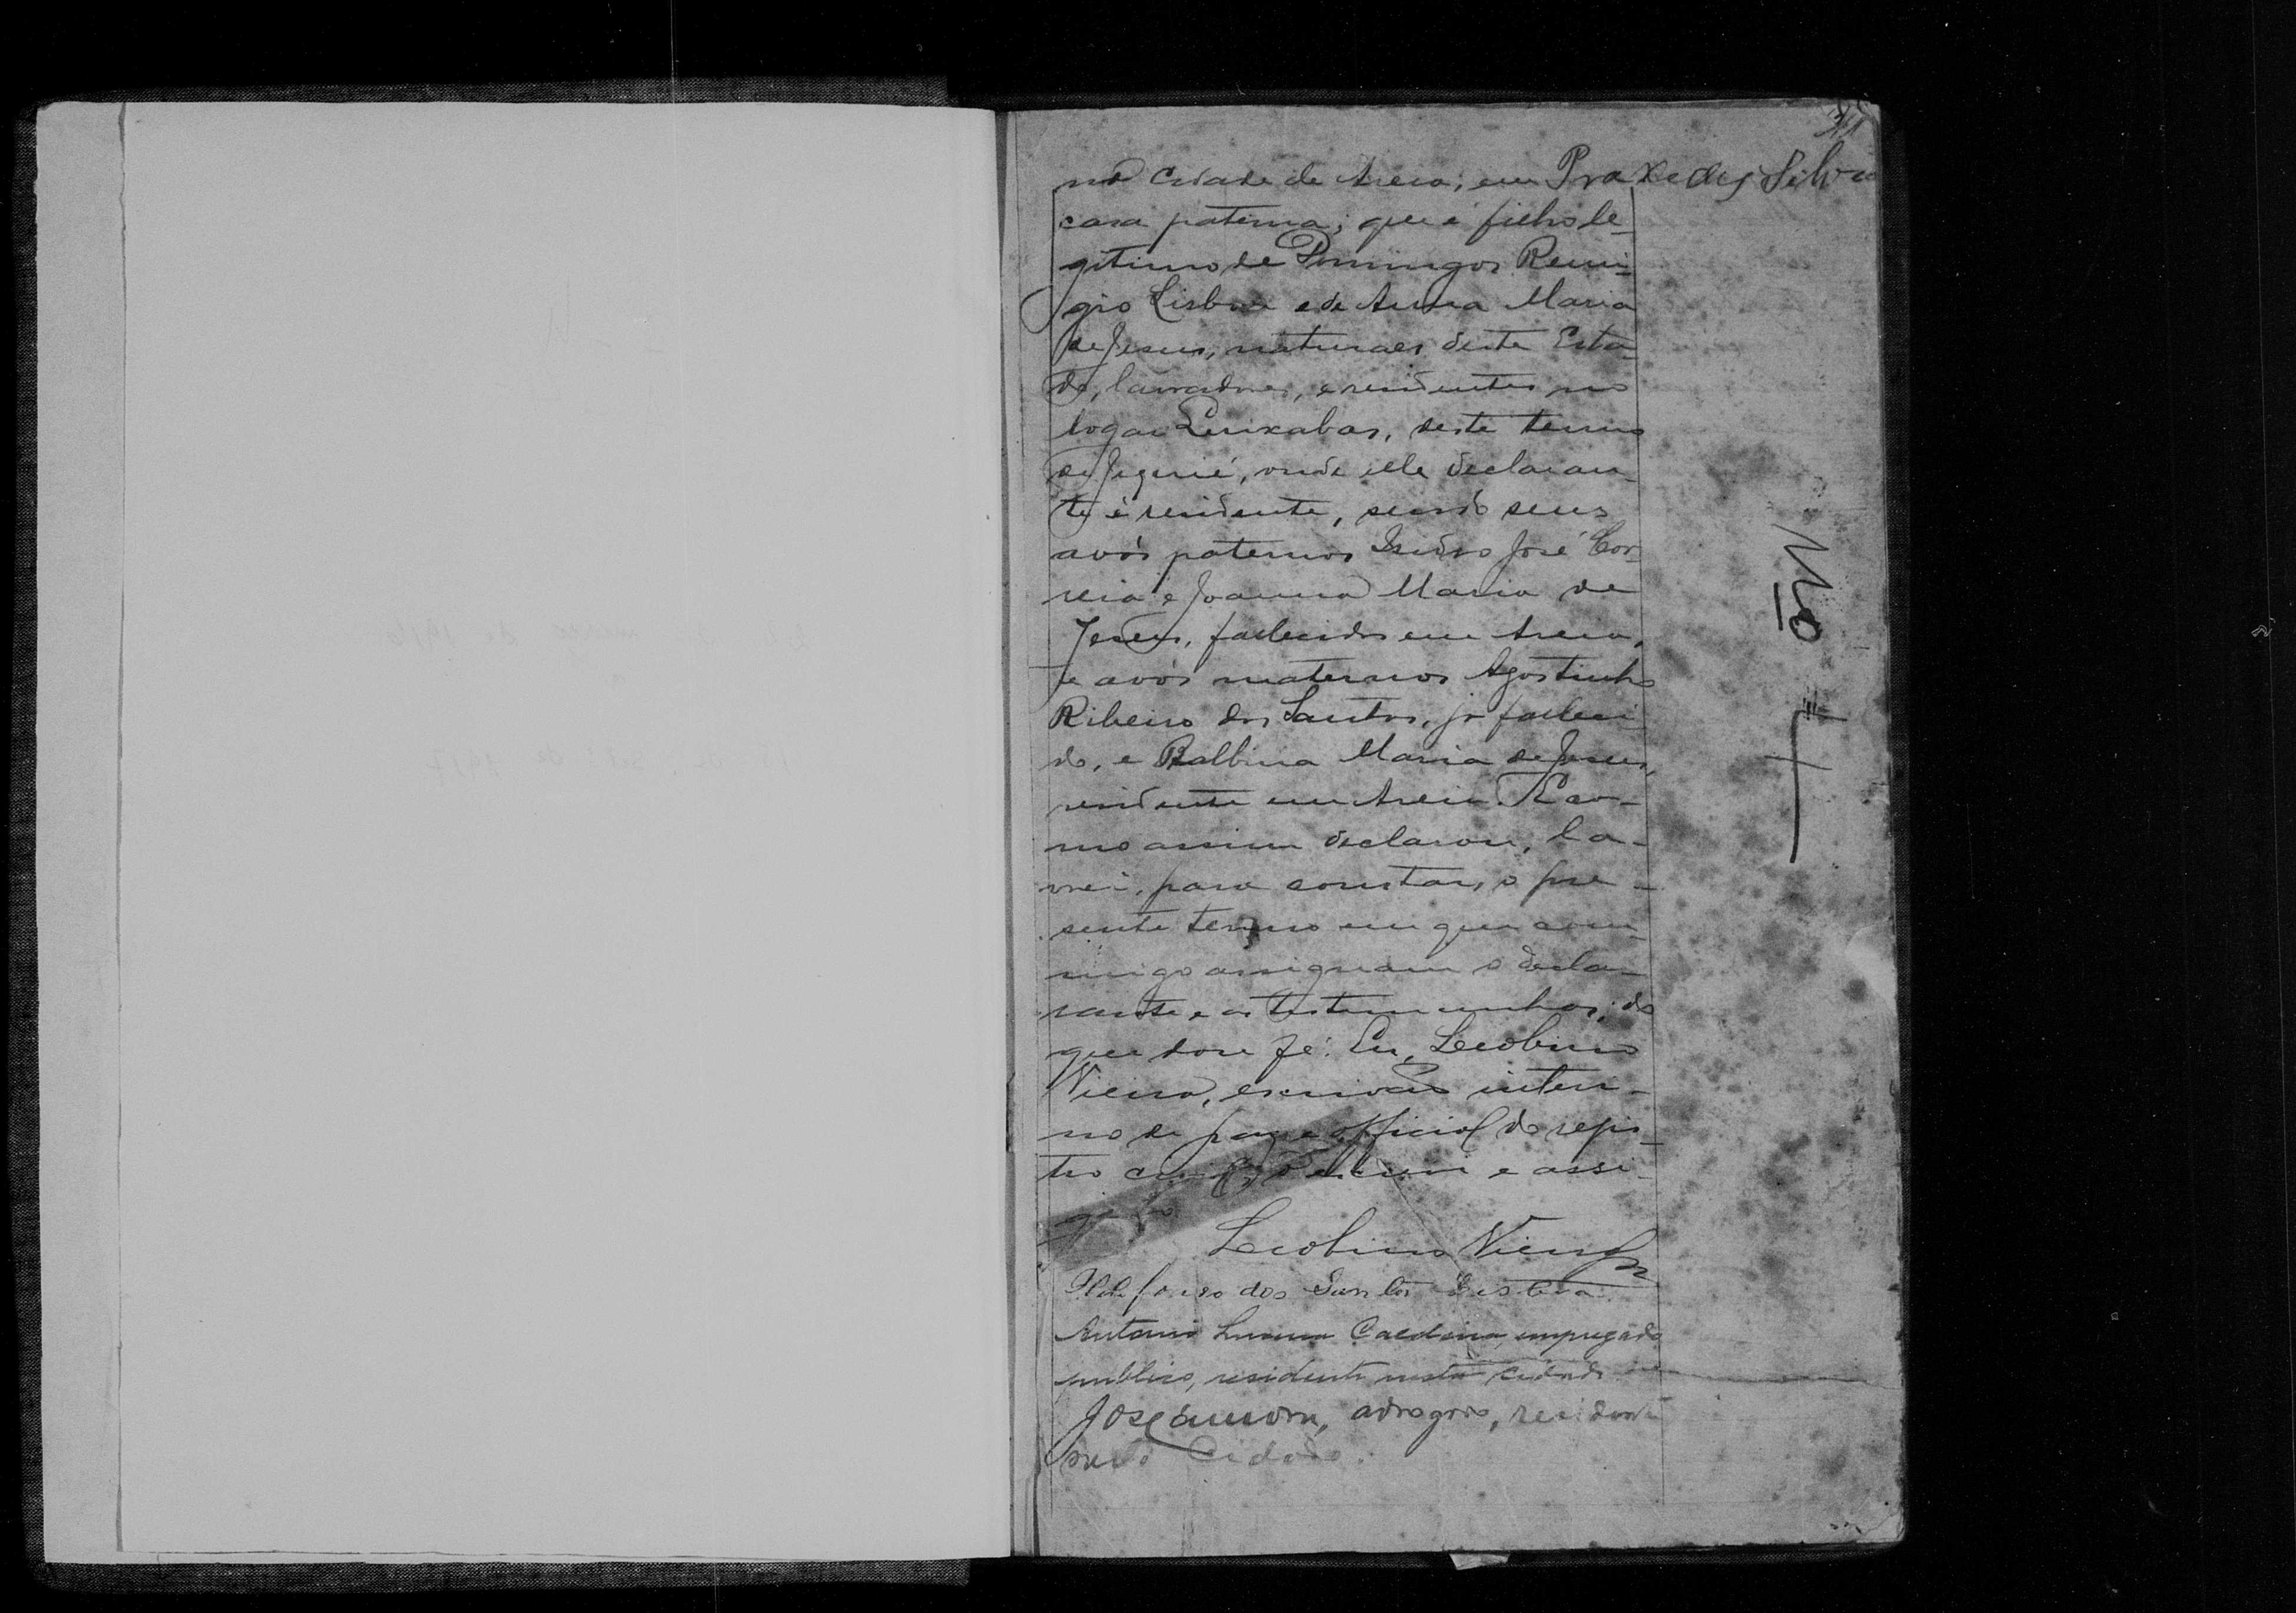 na Cidade de Areia; em Praxedes Silva
casa paterna; que é filho le-
gitimo de Domingos Remi-
gio Lisboa e de Anna Maria
de Jesus, naturaes deste Esta-
do, lavradores, e residentes no
logar deste termo
de Jequié, onde elle declaran-
te é residente, sendo seus
avós paternos Isidro José Cor-
reia e Joanna Maria de
Jesus, fallecidos em Areia,
e avós maternos Agostinho
Ribeiro dos Santos, já falleci-
do, e Balbina Maria de Jesus,
residente em Areia. E co-
mo assim declarou, la-
vrei, para constar, o pre-
sente termo em que com-
migo assignam o decla-
rante e as testemunhas; do
que dou fé. Eu, Leobino
Vieira, escrivão interi-
no de paz e official do regis-
tro civil, o escrevi e assi-
gno
Leobino Vieira
Ildefonso dos Santos Lisboa
Antonio Caldeira, empregado
publico, residente nesta cidade
José residente
nesta Cidade.